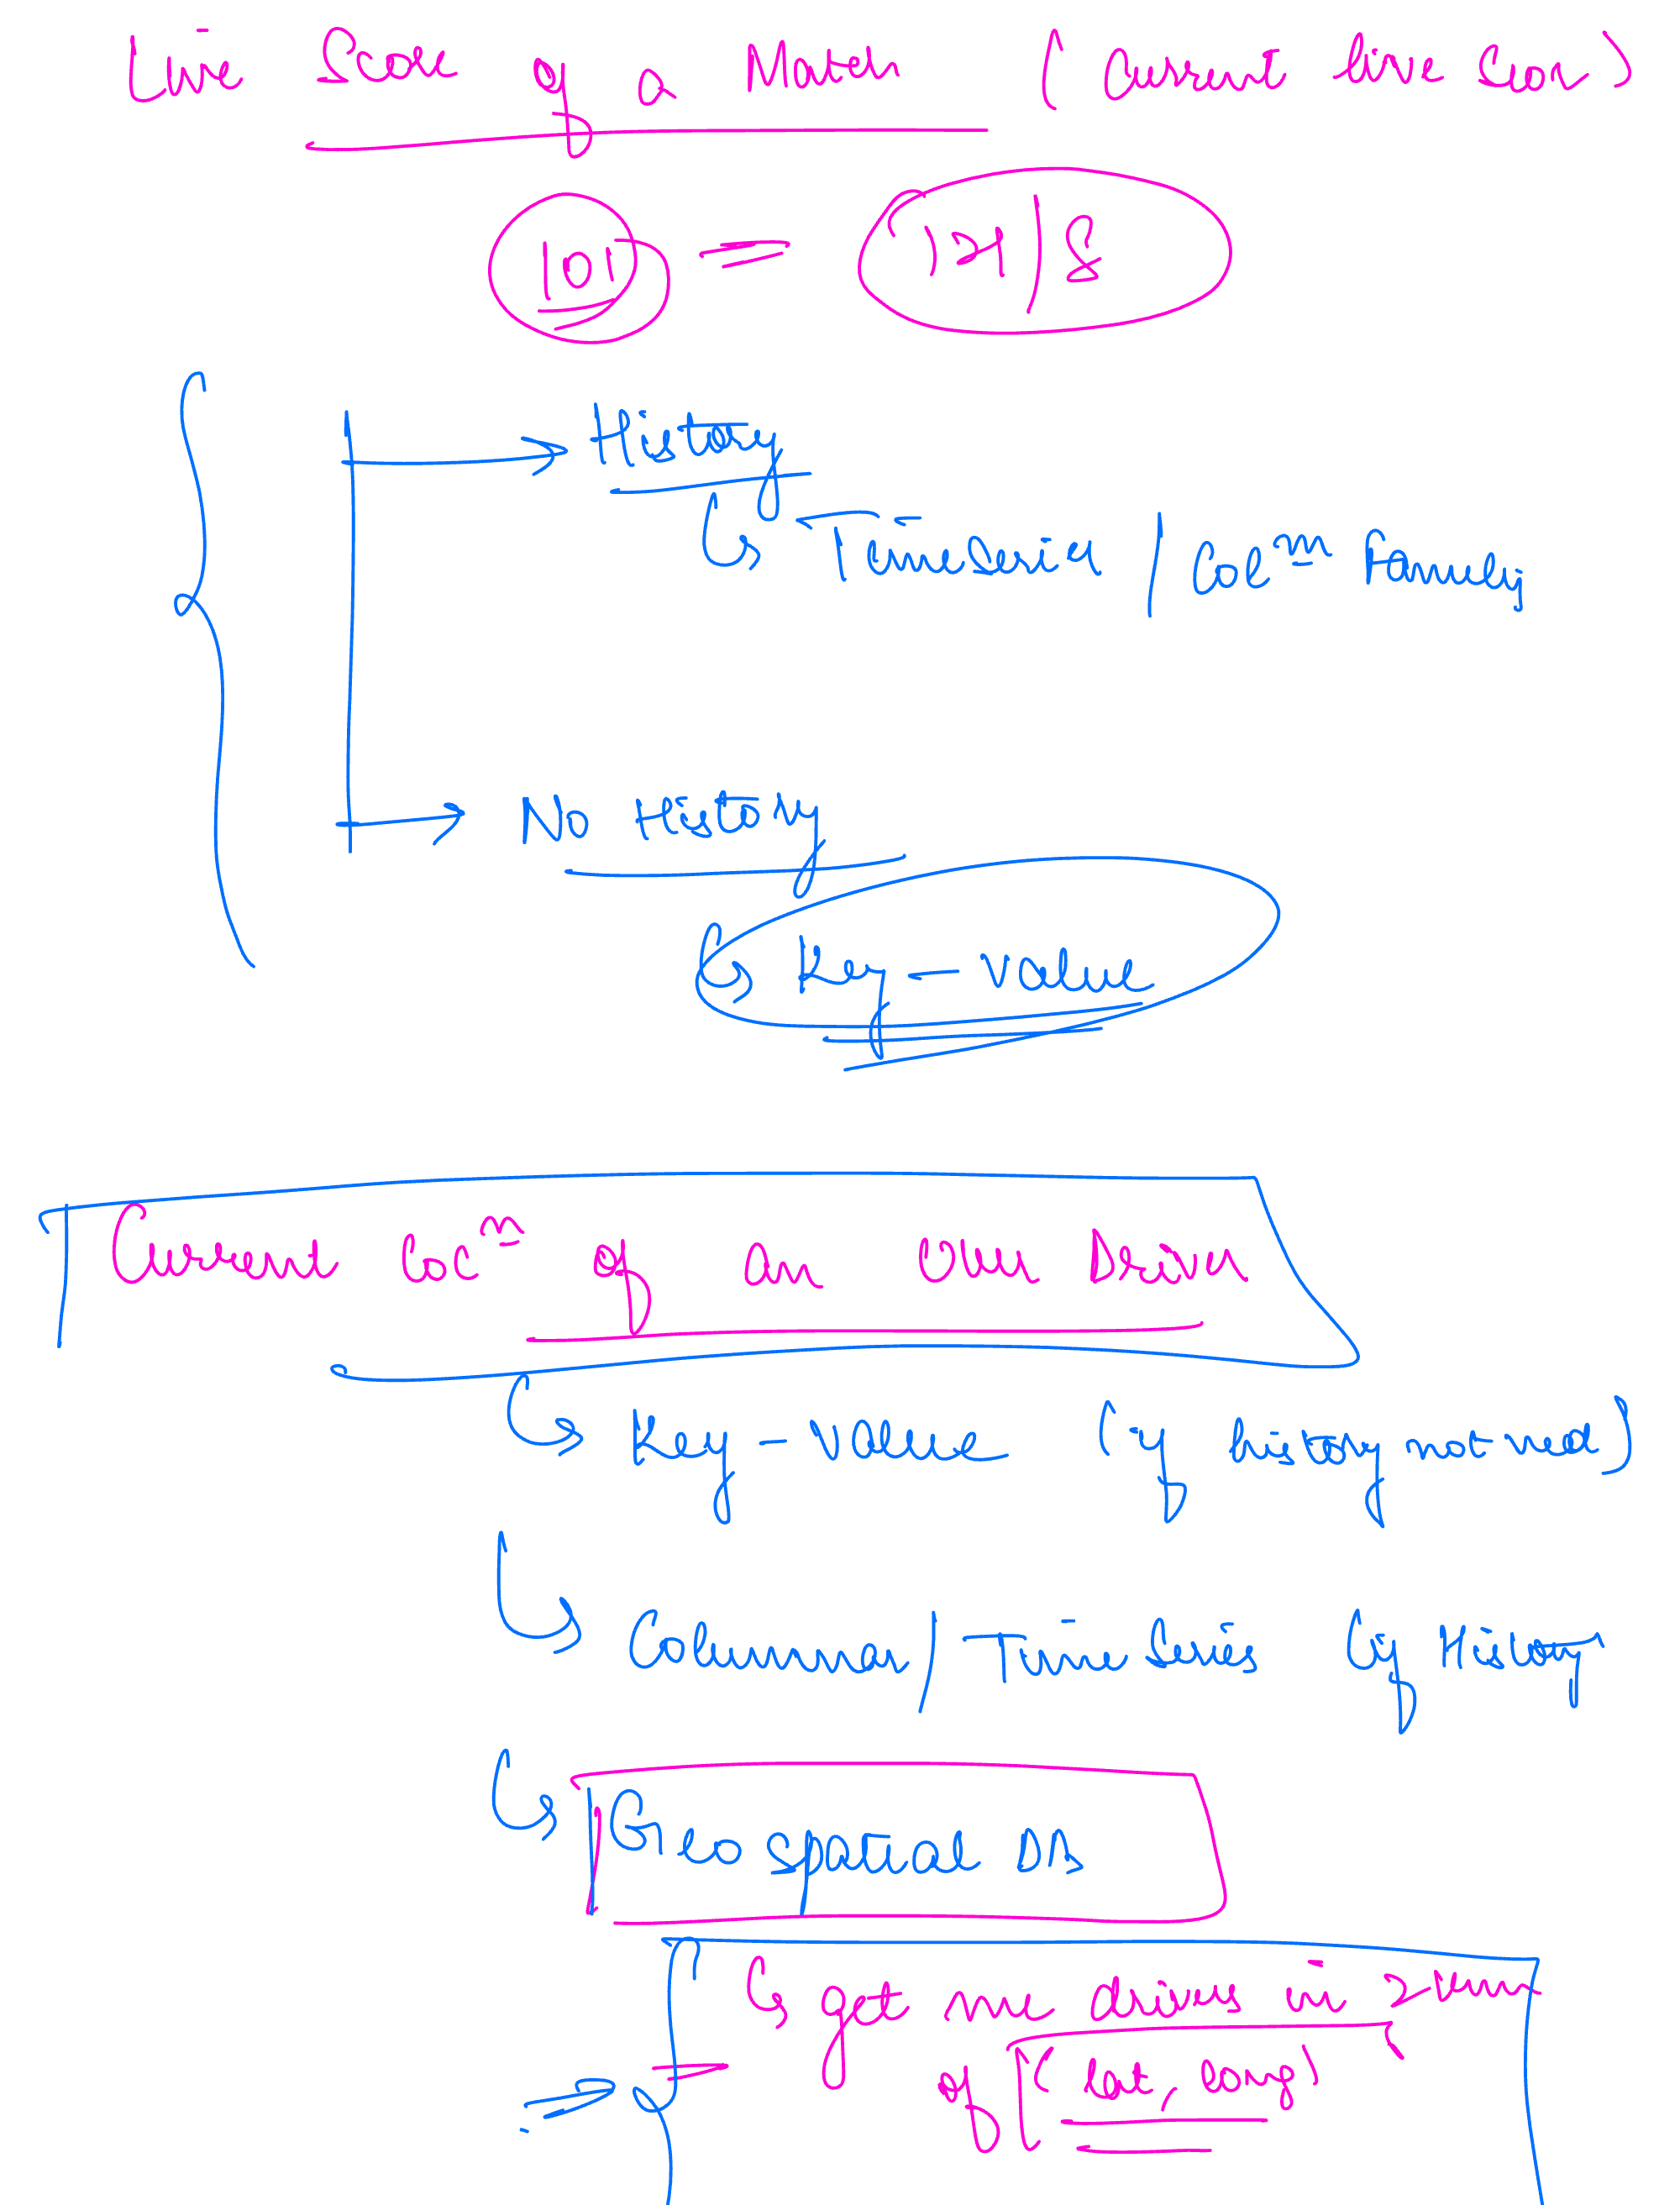 Live Score of a Match (Current live Score)
101 = 121/8
History
Timeseries / Colᵐⁿ Family
No History
Key-value
Current Locⁿ of an Uber Driver
Key-Value (if history not need)
Columnar/Time Series (if History
Geospatial DB
get me drivers in 2km
of (lat, long)